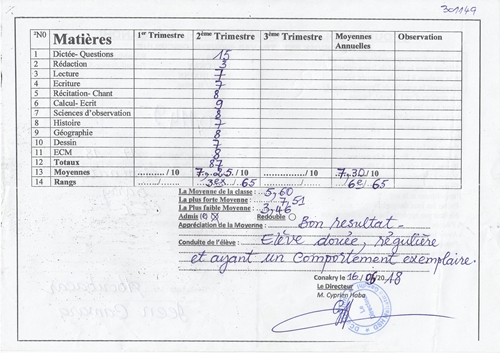 301149
²N0 Matières 1er Trimestre 2ème Trimestre 3ème Trimestre Moyennes Annuelles Observation
1 Dictée- Questions 15
2 Rédaction 3
3 Lecture 7
4 Ecriture 7
5 Récitation- Chant 8
6 Calcul- Ecrit 9
7 Sciences d'observation 8
8 Histoire 7
9 Géographie 8
10 Dessin 7
11 ECM 8
12 Totaux 87
13 Moyennes ........../ 10 7,25/ 10 ............/ 10 7,30/ 10
14 Rangs ....../...... 3ex/65 ....../...... 6e/65
La Moyenne de la classe : 5,60
La plus forte Moyenne : 7,51
La Plus faible Moyenne : 3,46
Admis (é) Redouble
Appréciation de la Moyenne : Bon resultat -
Conduite de l'élève : Elève douée, régulière
et ayant un comportement exemplaire.
Conakry le 16/06/2018
Le Directeur
M. Cyprien Haba